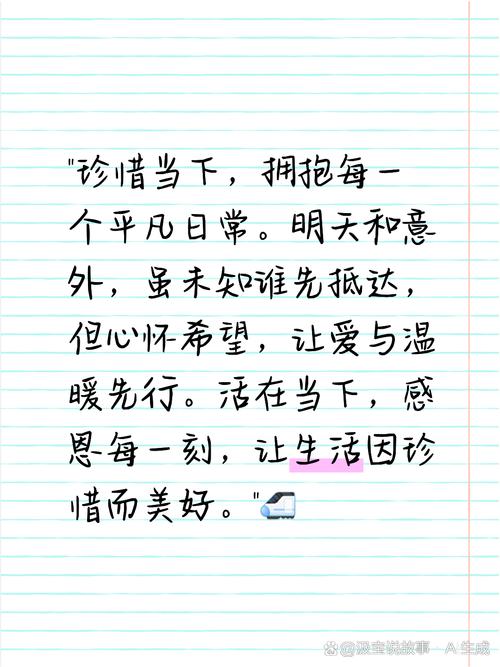 "珍惜当下，拥抱每一
个平凡日常。明天和意
外，虽未知谁先抵达，
但心怀希望，让爱与温
暖先行。活在当下，感
恩每一刻，让生活因珍
惜而美好。"
@汲宝说故事 · A 生成